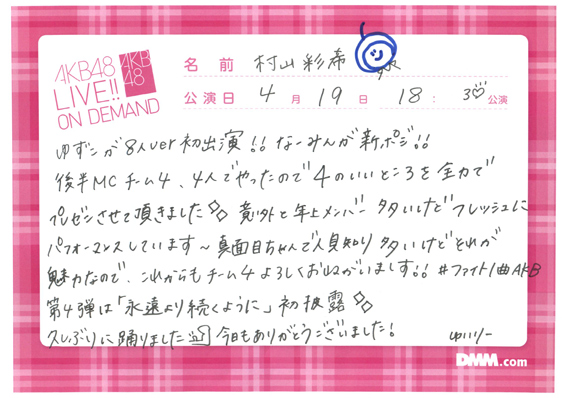 AKB48
LIVE!!
ON DEMAND
AKB
48
名前 村山彩希
公演日 4月19日 18:30公演
ゆずこが8人ver初出演!! なーみんが新ポジ!!
後半MCチーム4、4人でやったので4のいいところを全力で
プレゼンさせて頂きました 意外と年上メンバー多いけどフレッシュに
パフォーマンスしています〜真面目ちゃんで人見知り多いけどそれが
魅力なので、これからもチーム4よろしくおねがいします!! #ファイト1曲AKB
第4弾は「永遠より続くように」初披露
久しぶりに踊りました 今日もありがとうございました!
ゆいりー
DMM.com